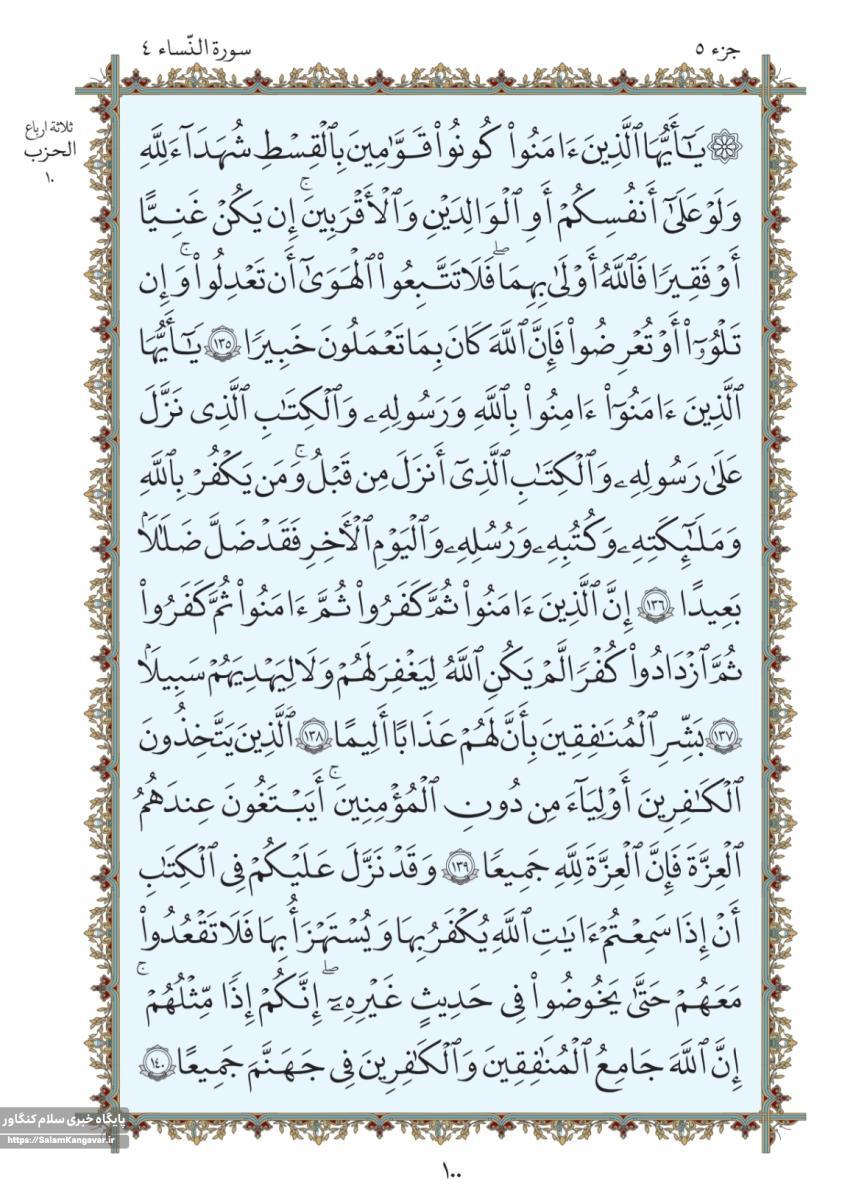 جزء ٥
سورة النّساء ٤
ثلاثة ارباع
الحزب
١٠
۞ يَـٰٓأَيُّهَا ٱلَّذِينَ ءَامَنُوا۟ كُونُوا۟ قَوَّٰمِينَ بِٱلْقِسْطِ شُهَدَآءَ لِلَّهِ
وَلَوْ عَلَىٰٓ أَنفُسِكُمْ أَوِ ٱلْوَٰلِدَيْنِ وَٱلْأَقْرَبِينَ ۚ إِن يَكُنْ غَنِيًّا
أَوْ فَقِيرًا فَٱللَّهُ أَوْلَىٰ بِهِمَا ۖ فَلَا تَتَّبِعُوا۟ ٱلْهَوَىٰٓ أَن تَعْدِلُوا۟ ۚ وَإِن
تَلْوُۥٓا۟ أَوْ تُعْرِضُوا۟ فَإِنَّ ٱللَّهَ كَانَ بِمَا تَعْمَلُونَ خَبِيرًا ١٣٥ يَـٰٓأَيُّهَا
ٱلَّذِينَ ءَامَنُوٓا۟ ءَامِنُوا۟ بِٱللَّهِ وَرَسُولِهِۦ وَٱلْكِتَـٰبِ ٱلَّذِى نَزَّلَ
عَلَىٰ رَسُولِهِۦ وَٱلْكِتَـٰبِ ٱلَّذِىٓ أَنزَلَ مِن قَبْلُ ۚ وَمَن يَكْفُرْ بِٱللَّهِ
وَمَلَـٰٓئِكَتِهِۦ وَكُتُبِهِۦ وَرُسُلِهِۦ وَٱلْيَوْمِ ٱلْأَخِرِ فَقَدْ ضَلَّ ضَلَـٰلًۢا
بَعِيدًا ١٣٦ إِنَّ ٱلَّذِينَ ءَامَنُوا۟ ثُمَّ كَفَرُوا۟ ثُمَّ ءَامَنُوا۟ ثُمَّ كَفَرُوا۟
ثُمَّ ٱزْدَادُوا۟ كُفْرًا لَّمْ يَكُنِ ٱللَّهُ لِيَغْفِرَ لَهُمْ وَلَا لِيَهْدِيَهُمْ سَبِيلًۢا
١٣٧ بَشِّرِ ٱلْمُنَـٰفِقِينَ بِأَنَّ لَهُمْ عَذَابًا أَلِيمًا ١٣٨ ٱلَّذِينَ يَتَّخِذُونَ
ٱلْكَـٰفِرِينَ أَوْلِيَآءَ مِن دُونِ ٱلْمُؤْمِنِينَ ۚ أَيَبْتَغُونَ عِندَهُمُ
ٱلْعِزَّةَ فَإِنَّ ٱلْعِزَّةَ لِلَّهِ جَمِيعًا ١٣٩ وَقَدْ نَزَّلَ عَلَيْكُمْ فِى ٱلْكِتَـٰبِ
أَنْ إِذَا سَمِعْتُمْ ءَايَـٰتِ ٱللَّهِ يُكْفَرُ بِهَا وَيُسْتَهْزَأُ بِهَا فَلَا تَقْعُدُوا۟
مَعَهُمْ حَتَّىٰ يَخُوضُوا۟ فِى حَدِيثٍ غَيْرِهِۦٓ ۖ إِنَّكُمْ إِذًا مِّثْلُهُمْ ۚ
إِنَّ ٱللَّهَ جَامِعُ ٱلْمُنَـٰفِقِينَ وَٱلْكَـٰفِرِينَ فِى جَهَنَّمَ جَمِيعًا ١٤٠
پایگاه خبری سلام کنگاور
https://SalamKangavar.ir
١٠٠